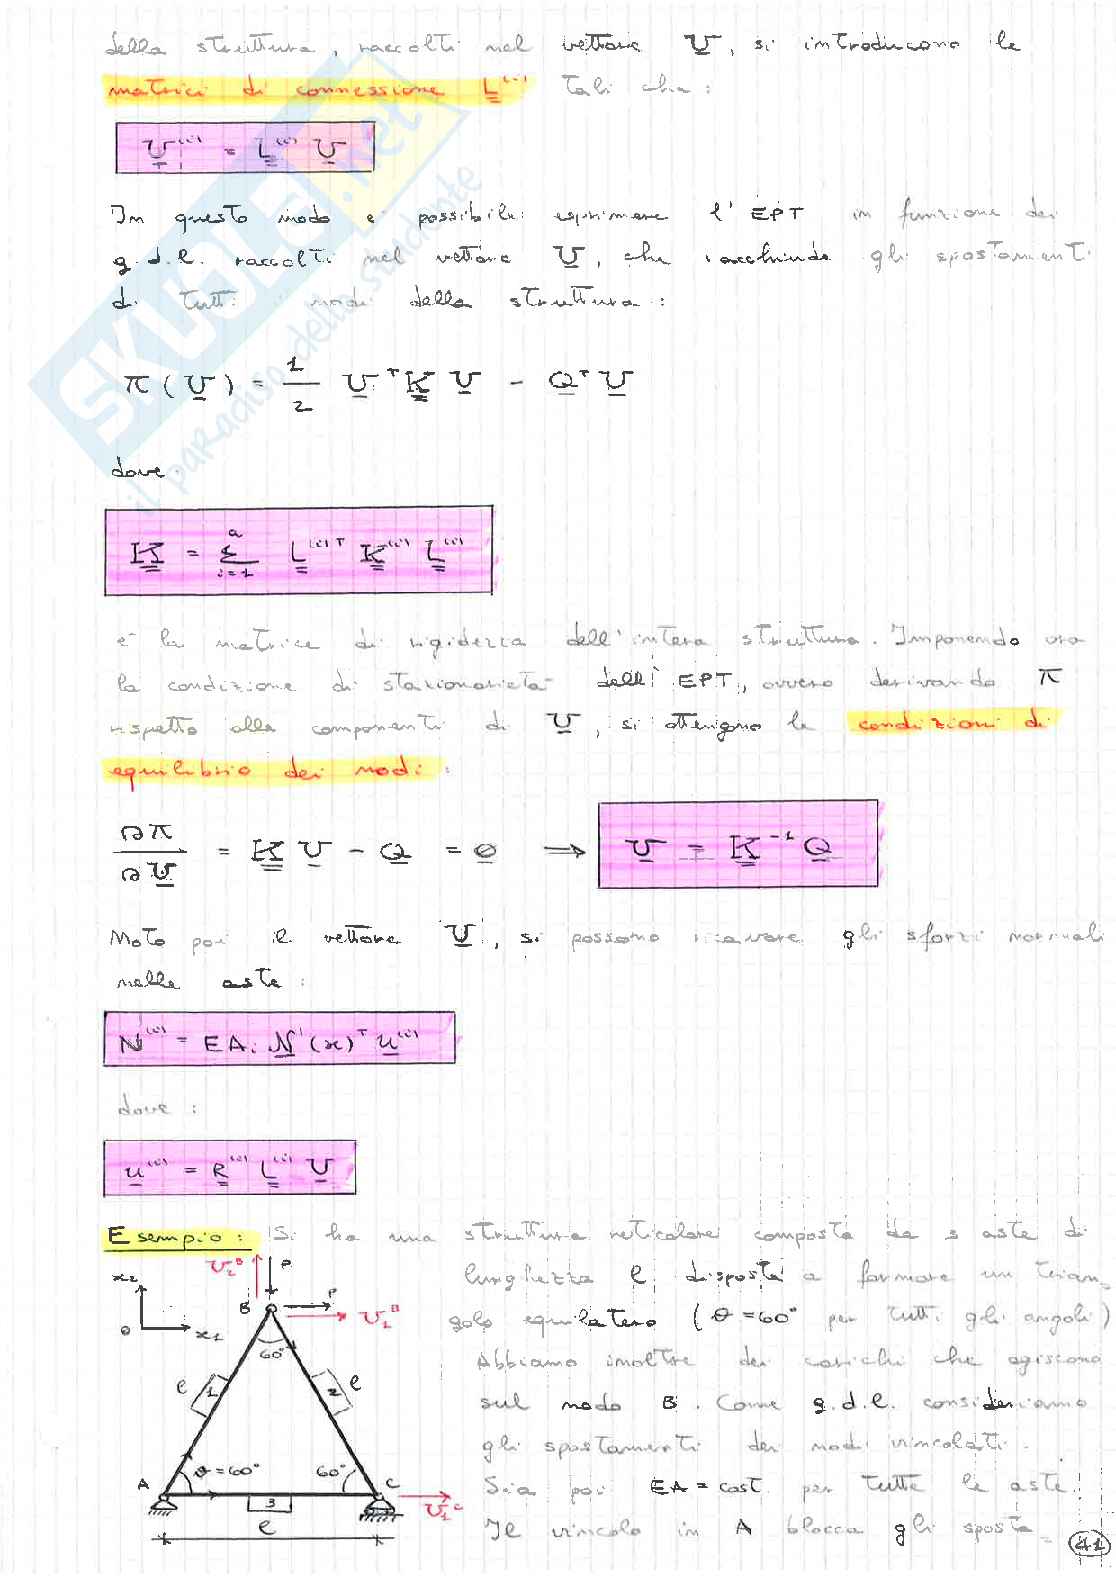 della struttura, raccolti nel vettore U, si introducono le
matrici di connessione L⁽ⁱ⁾ tali che:
U⁽ⁱ⁾ = L⁽ⁱ⁾ U
In questo modo e' possibile esprimere l'EPT in funzione dei
g.d.l. raccolti nel vettore U, che racchiude gli spostamenti
di tutti i nodi della struttura:
π(U) = 1/2 Uᵀ K U - Qᵀ U
dove
K = Σ i=1 a L⁽ⁱ⁾ᵀ K⁽ⁱ⁾ L⁽ⁱ⁾
e' la matrice di rigidezza dell'intera struttura. Imponendo ora
la condizione di stazionarieta' dell'EPT, ovvero derivando π
rispetto alle componenti di U, si ottengono le condizioni di
equilibrio dei nodi:
∂π/∂U = K U - Q = 0 → U = K⁻¹ Q
Noto poi il vettore U, si possono ricavare gli sforzi normali
nelle aste:
N⁽ⁱ⁾ = EAᵢ N'(x)ᵀ u⁽ⁱ⁾
dove:
u⁽ⁱ⁾ = R⁽ⁱ⁾ L⁽ⁱ⁾ U
Esempio: Si ha una struttura reticolare composta da 3 aste di
lunghezza l disposte a formare un trian-
golo equilatero (θ = 60° per tutti gli angoli)
Abbiamo inoltre dei carichi che agiscono
sul nodo B. Come g.d.l. consideriamo
gli spostamenti dei nodi vincolati.
Sia poi EA = cost per tutte le aste.
Il vincolo in A blocca gli sposta-
x2
0
x1
U₂ᴮ
P
B
P
U₁ᴮ
60°
l
1
2
l
A
θ = 60°
60°
C
3
U₁ᶜ
l
41
SKUOLA.net
il paradiso dello studente